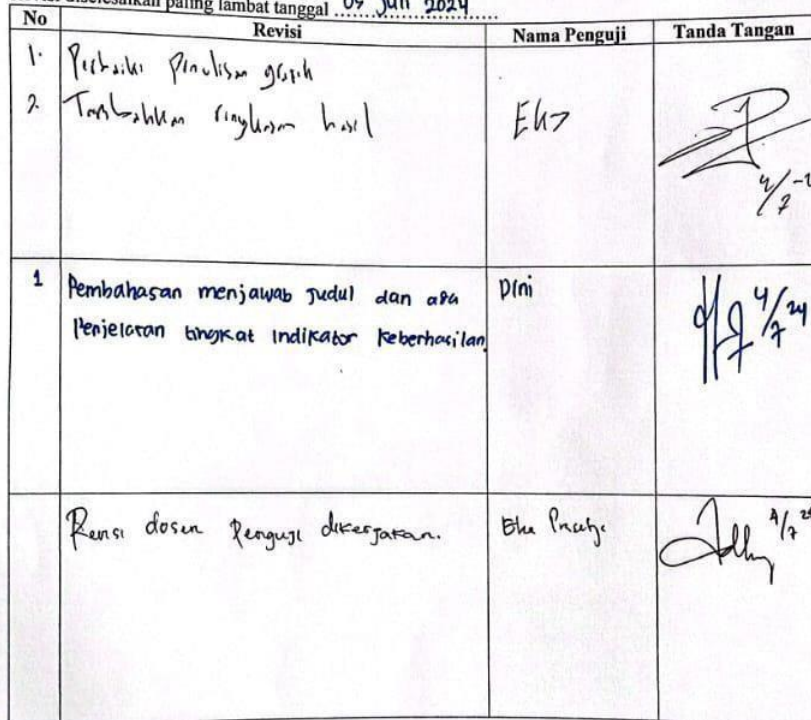 diselesaikan paling lambat tanggal 09 Juli 2024
No Revisi Nama Penguji Tanda Tangan
1. Perbaiki penulisan grafik
2. Tambahkan ringkasan hasil
Eka
4/7
1 Pembahasan menjawab Judul dan ada
Penjelasan tingkat indikator keberhasilan.
Dini
4/7 24
Revisi dosen Penguji dikerjakan.
Eka
4/7 24